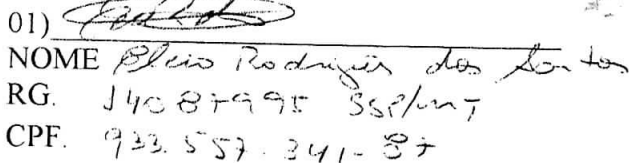 01)
NOME Elcio Rodrigues dos Santos
RG. 14087995 SSP/MT
CPF. 933.557.341-87